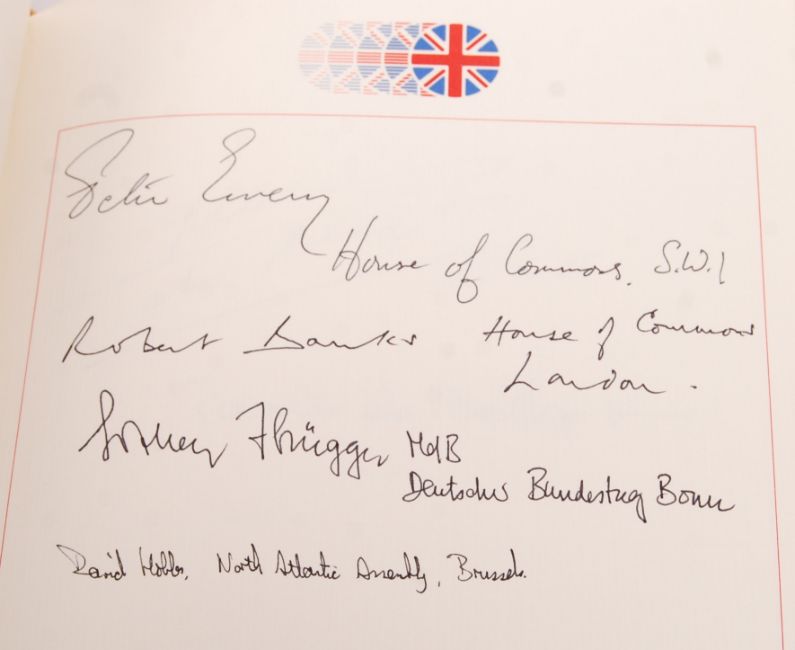 Peter Emery
House of Commons, S.W.1
Robert Banks House of Commons
London.
Lothar Ibrügger MdB
Deutscher Bundestag Bonn
David Hobbs, North Atlantic Assembly, Brussels.